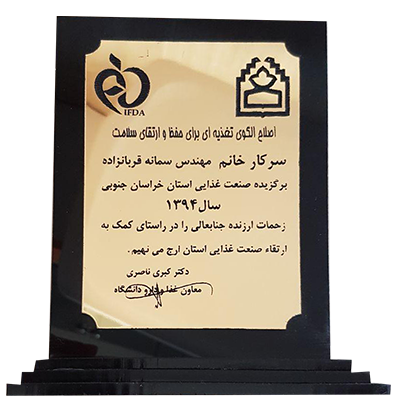 IFDA
اصلاح الگوی تغذیه ای برای حفظ و ارتقای سلامت
سرکار خانم مهندس سمانه قربانزاده
برگزیده صنعت غذایی استان خراسان جنوبی
سال ۱۳۹۴
زحمات ارزنده جنابعالی را در راستای کمک به
ارتقاء صنعت غذایی استان ارج می نهیم .
دکتر کبری ناصری
معاون غذا و دارو دانشگاه